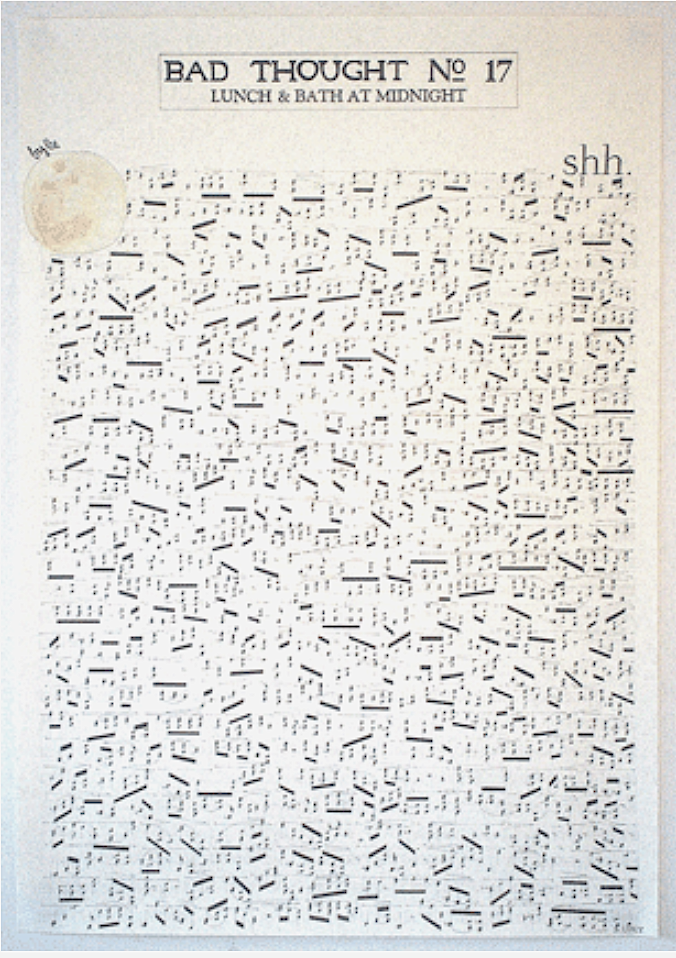 BAD THOUGHT Nº 17
LUNCH & BATH AT MIDNIGHT
shh.